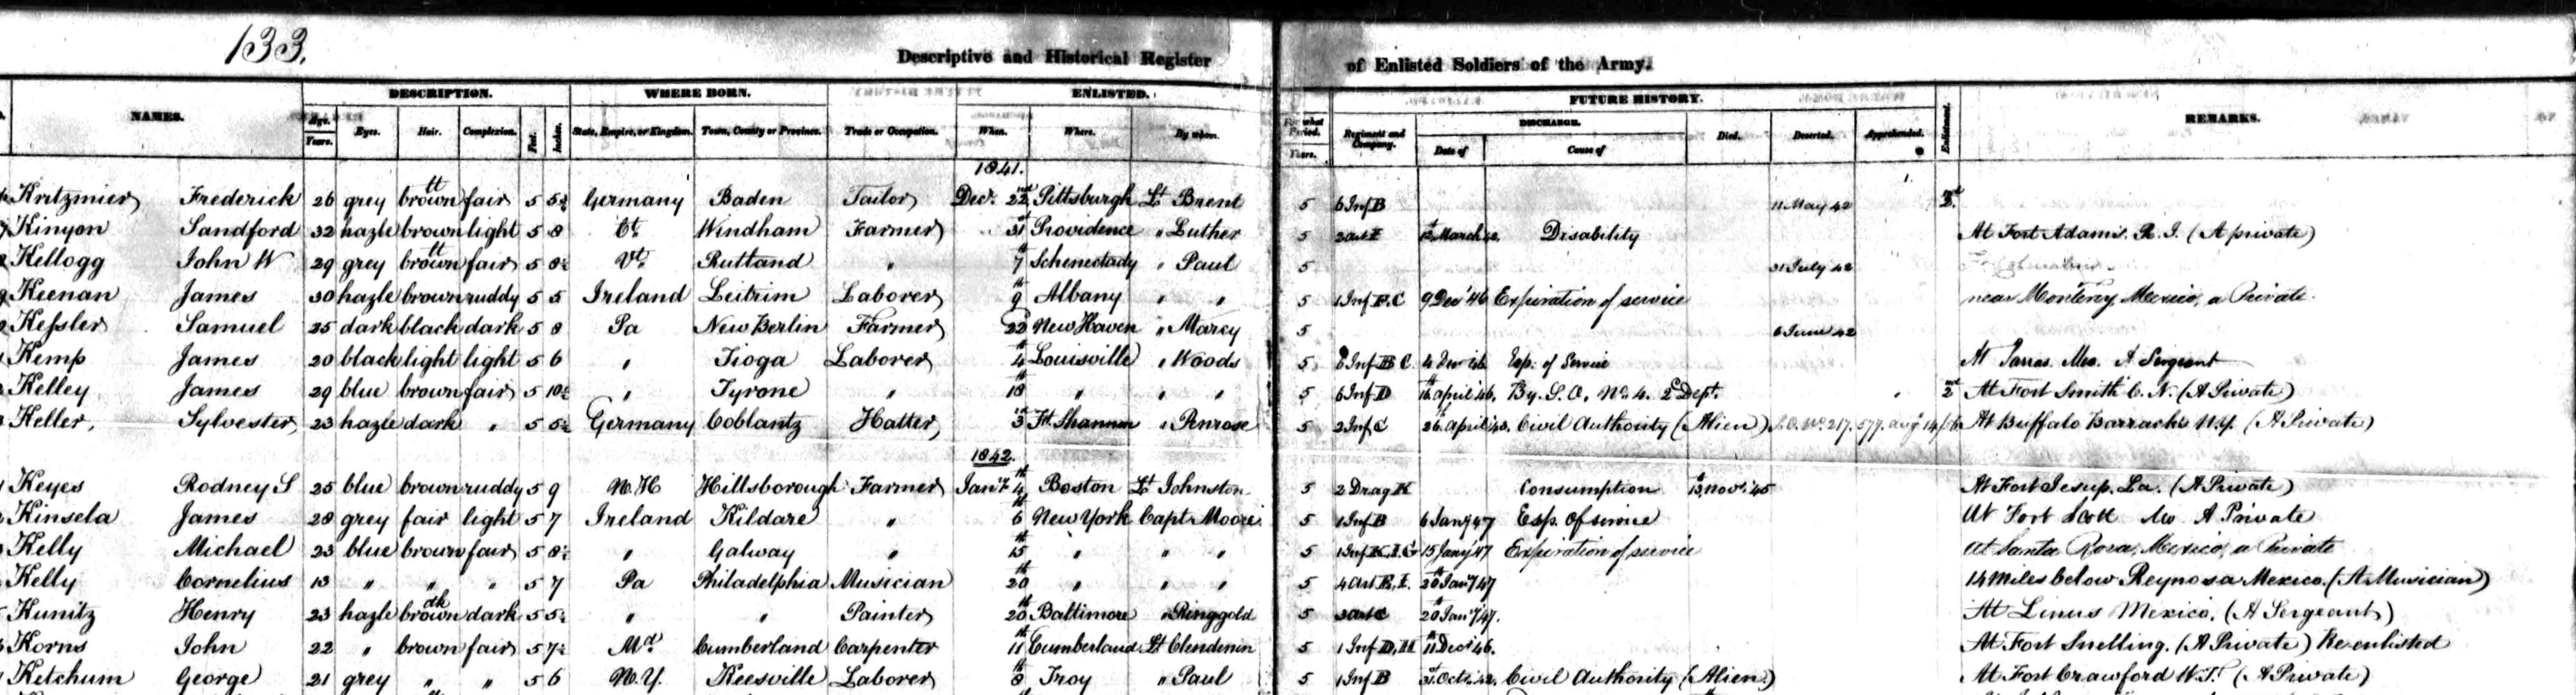 133.
Descriptive and Historical Register of Enlisted Soldiers of the Army.
NAMES. DESCRIPTION. WHERE BORN. ENLISTED. FUTURE HISTORY. REMARKS.
Age. Eyes. Hair. Complexion. Feet. Inches. State, Empire, or Kingdom. Town, County or Province. Trade or Occupation. When. Where. By whom. For what Period. Regiment and Company. DISCHARGE. Died. Deserted. Apprehended. Enlistment.
Years. Years. Date of Cause of
1841.
Kritzmier Frederick 26 grey lt brown fair 5 5½ Germany Baden Tailor Decr. 22nd Pittsburgh Lt Brent 5 6 Inf B 11 May 42 2nd
Kinyon Sandford 32 hazle brown light 5 8 Ct. Windham Farmer 31st Providence " Luther 5 2 art E 12 March 42. Disability At Fort Adams. R. I. (A private)
Kellogg John W 29 grey lt brown fair 5 8½ Vt. Rutland " 7th Schenectady " Paul 5 31 July 42
Keenan James 30 hazle brown ruddy 5 5 Ireland Leitrim Laborer 9th Albany " " 5 1 Inf F. C 9 Dec '46 Expiration of service near Monterey Mexico, a Private.
Kessler Samuel 25 dark black dark 5 8 Pa New Berlin Farmer 22 New Haven " Marcy 5 6 June 42
Kemp James 20 black light light 5 6 " Tioga Laborer 4th Louisville " Woods 5 6 Inf B C 4 Dec 46 Exp. of Service At Parras. Mex. A Sergeant
Kelley James 29 blue brown fair 5 10½ " Tyrone " 18th " " " 5 6 Inf D 16th april '46. By. S. O. No. 4. 2d Dept. 2nd At Fort Smith C. N. (A Private)
Keller, Sylvester, 23 hazle dark " 5 5½ Germany Coblantz Hatter, 3rd Ft. Shannon " Penrose 5 2 Inf C 26th april '43. Civil Authority (Alien) S.O. No. 217. 577. Aug 14/56 At Buffalo Barracks N.Y. (A Private)
1842.
Keyes Rodney S 25 blue brown ruddy 5 9 N. H Hillsborough Farmer Jany 4th Boston Lt Johnston 5 2 Drag K Consumption 13th Novr. '45 At Fort Jesup. La. (A Private)
Kinsela James 28 grey fair light 5 7 Ireland Kildare " 6th New York Capt Moore 5 1 Inf B 6 Jany 47 Exp. of service At Fort Scott Mo A Private
Kelly Michael 23 blue brown fair 5 8½ " Galway " 15th " " " 5 1 Inf K. I. G 15 Jany 47 Expiration of service at Santa Rosa, Mexico, a Private
Kelly Cornelius 13 " " " 5 7 Pa Philadelphia Musician 20th " " " 5 4 Art B. I. 20th Jany 47 14 miles below Reynosa Mexico. (A Musician)
Kunitz Henry 23 hazle dk brown dark 5 5½ " " Painter 20th Baltimore " Ringgold 5 3 art C 20th Jany '47. At Linus Mexico. (A Sergeant)
Korns John 22 " brown fair 5 7½ Md. Cumberland Carpenter 11th Cumberland Lt Clendenin 5 1 Inf D, H 11th Decr 46. At Fort Snelling. (A Private) Re-enlisted
Ketchum George 21 grey " " 5 6 N. Y. Keesville Laborer 8th Troy " Paul 5 1 Inf B 31st Octr. '42. Civil Authority (Alien.) At Fort Crawford W. T. (A Private)